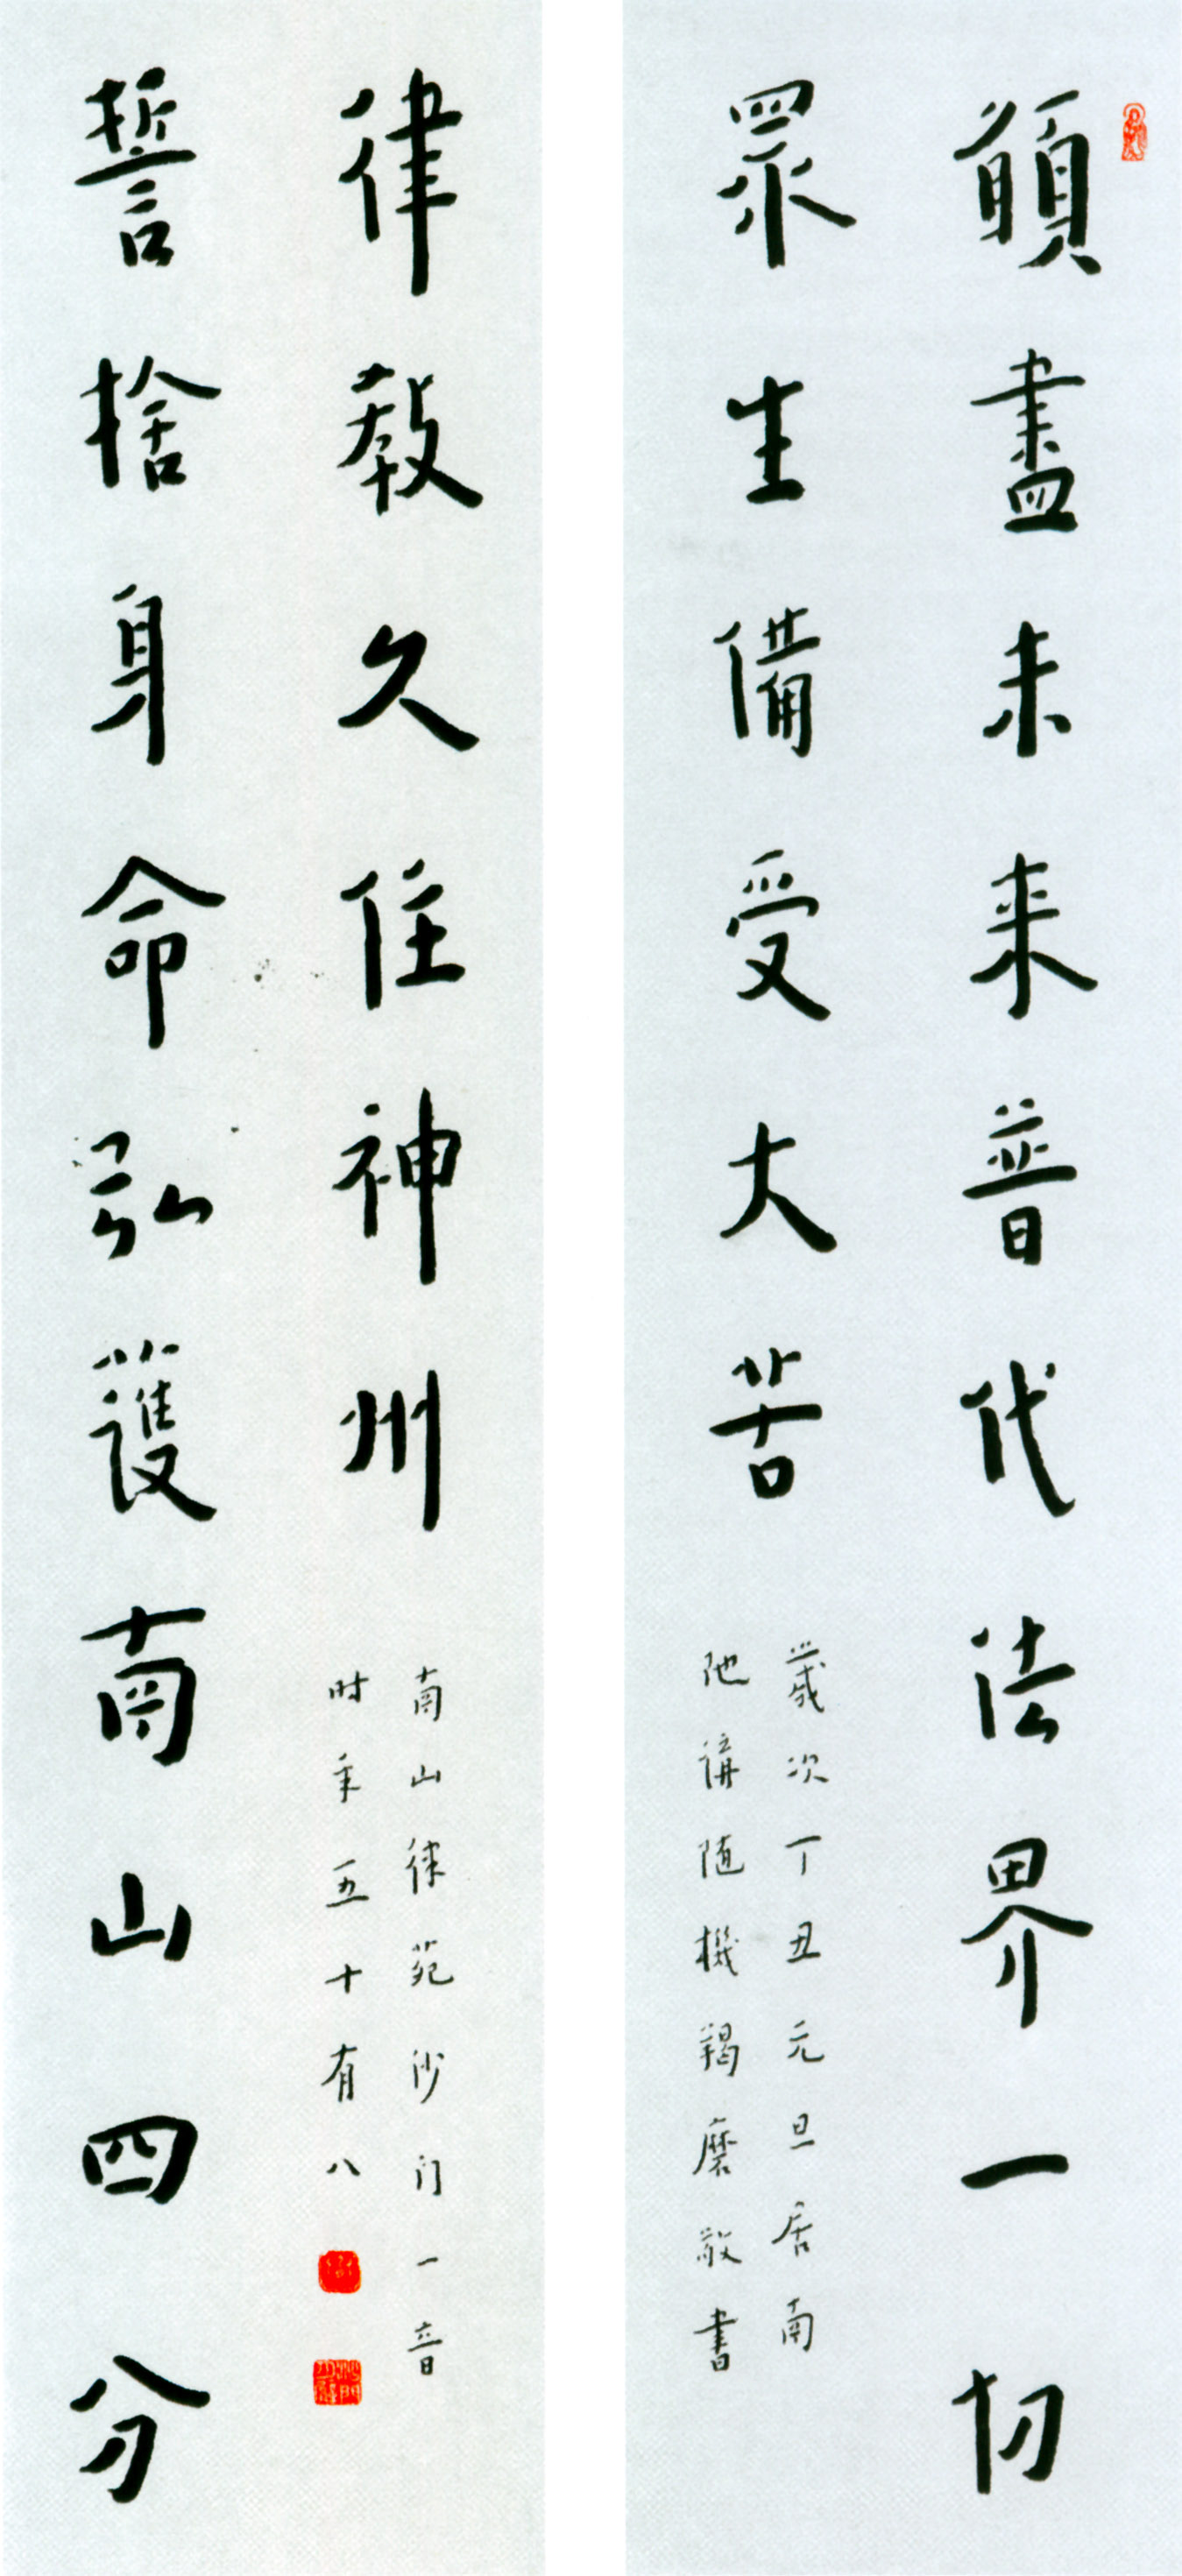 願盡未来普代法界一切
眾生備受大苦
歲次丁丑元旦居南
陁講随機羯磨敬書
誓捨身命弘護南山四分
律教久住神州
南山律苑沙门一音
时年五十有八